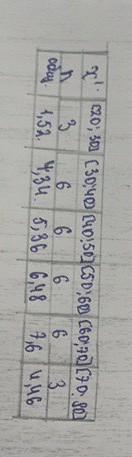 x¹. [20; 30) [30; 40) [40; 50) [50; 60) [60; 70) [70; 80)
n 3 6 6 6 6 3
1,52. 4,34. 5,36 6,48 7,6 4,46